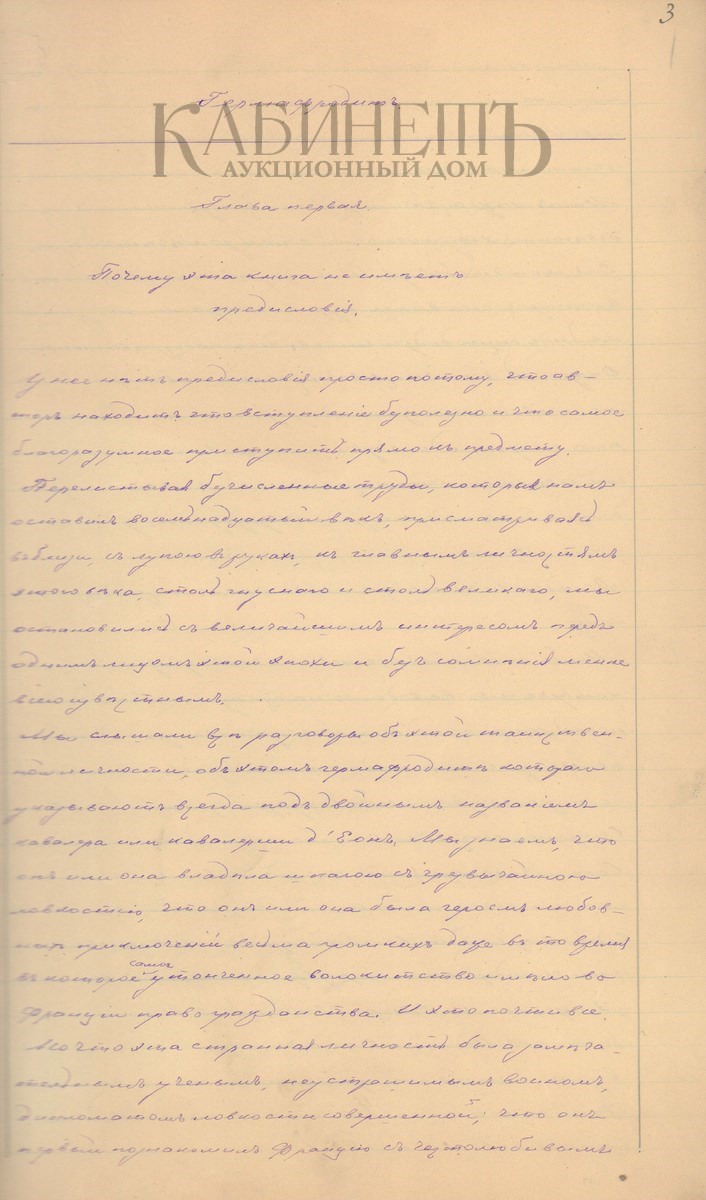 3
Гермафродитъ.
КАБИНЕТЪ
АУКЦИОННЫЙ ДОМ
Глава первая.
Почему эта книга не имѣетъ
предисловія.
У нее нѣтъ предисловія просто потому, что ав-
торъ находитъ, что вступленіе безполезно и что самое
благоразумное приступить прямо къ предмету.
Перелистывая безчисленные труды, которыя намъ
оставилъ восемнадцатый вѣкъ, присматриваясь
вблизи, съ лупою въ рукахъ, къ главнымъ личностямъ
этого вѣка, столь гнуснаго и столь великаго, мы
остановились съ величайшимъ интересомъ передъ
однимъ лицомъ этой эпохи и безъ сомнѣнія менѣе
всего извѣстнымъ.
Мы слышали всѣ разговоры объ этой таинствен-
ной личности, объ этомъ гермафродитѣ которого
указываютъ всегда подъ двойнымъ названіемъ
кавалера или кавалерши д'Еонъ. Мы знаемъ, что
онъ или она владѣла шпагою съ чрезвычайною
ловкостію, что онъ или она была героемъ любов-
ныхъ приключеній весьма громкихъ даже въ то время
въ которое самое утонченное волокитство имѣло во
Франціи право гражданства. И это почти все.
Но что эта странная личность была замѣча-
тельнымъ ученымъ, неустрашимымъ воиномъ,
дипломатомъ ловкости совершенной; что онъ
первый познакомилъ Францію съ честолюбивымъ